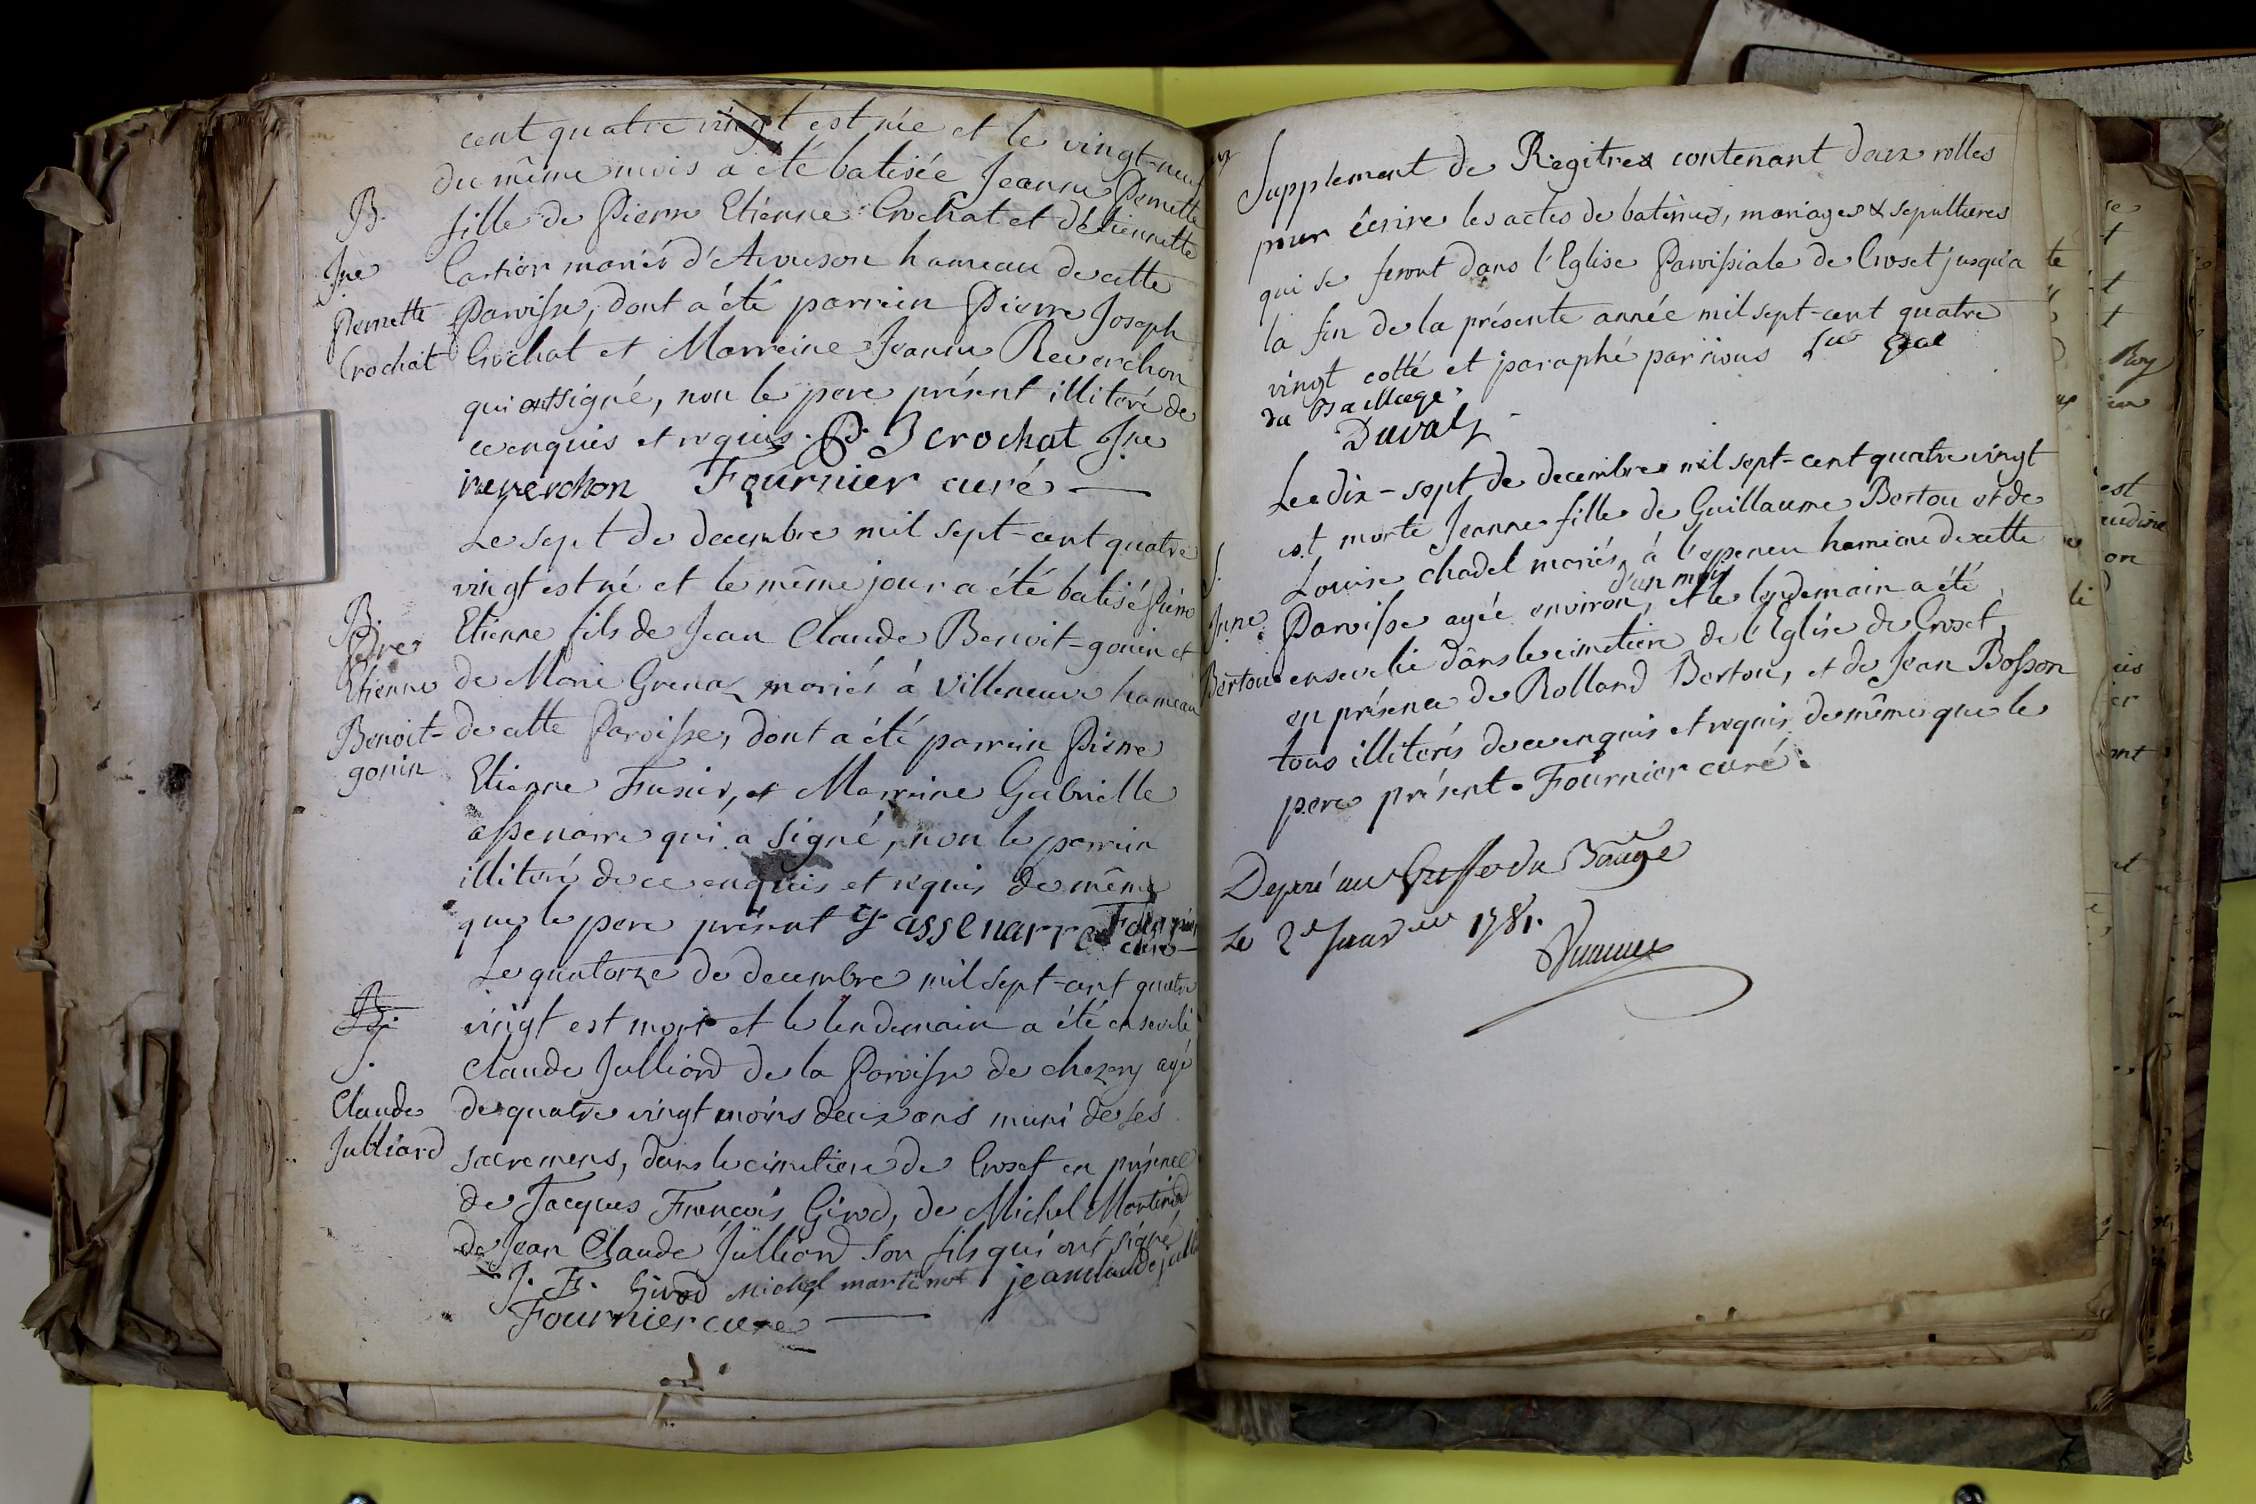 cent quatre vingt est née et le vingt-neuf
du même mois a été batisée Jeanne Pernette
B. fille de Pierre Etienne Crochat et d'Etiennette
Jne Cartier mariés d'Avouson hameau de cette
Pernette Paroisse, dont a été parrein Pierre Joseph
Crochat Crochat et Marreine Jeanne Reverchon
qui ont signé, non le pere présent illiteré de
ce enquis et requis. P. J crochat Jne
reverchon Fournier curé
Le sept de decembre mil sept-cent quatre
vingt est né et le même jour a été batisé Pierre
B. Pre Etienne fils de Jean Claude Benoit-gonin et
Etienne de Marie Grenaz mariés à Villeneuve hameau
Benoit- de cette Paroisse, dont a été parrein Pierre
gonin Etienne Fusier, et Marreine Gabrielle
assenarre qui a signé, non le parrein
illiteré de ce enquis et requis de même
que le pere présent g assenarre Fournier
curé
Le quatorze de decembre mil sept-cent quatre
B. vingt est mort et le lendemain a été enseveli
S. Claude Julliard de la Paroisse de chezery agé
Claude de quatre vingt moins deux ans muni de ses
Julliard sacremens, dans le cimetiere de Croset en présence
de Jacques François Girod, de Michel Martinod
de Jean Claude Julliard son fils qui ont signé
J. F. Girod Michel martinot jeanclaude julli
Fournier curé
Supplement de Registres contenant deux rolles
pour écrire les actes de batêmes, mariages & sepultures
qui se feront dans l'Eglise Paroissiale de Croset jusqu'a
la fin de la présente année mil sept-cent quatre
vingt cotté et paraphé par nous
du Bailliage.
Duval
Le dix-sept de decembre mil sept-cent quatre vingt
est morte Jeanne fille de Guillaume Bertou et de
S. Louise chadel mariés à l'epeneu hameau de cette
d'un mois
Jnne Paroisse agée environ, et le lendemain a été
Bertou ensevelie dans le cimetiere de l'Eglise de Croset,
en présence de Rolland Bertou, et de Jean Bosson
tous illiterés de ce enquis et requis de même que le
pere présent. Fournier curé.
Deposé au Greffe du Bailliage
Le 2e Janvier 1781.